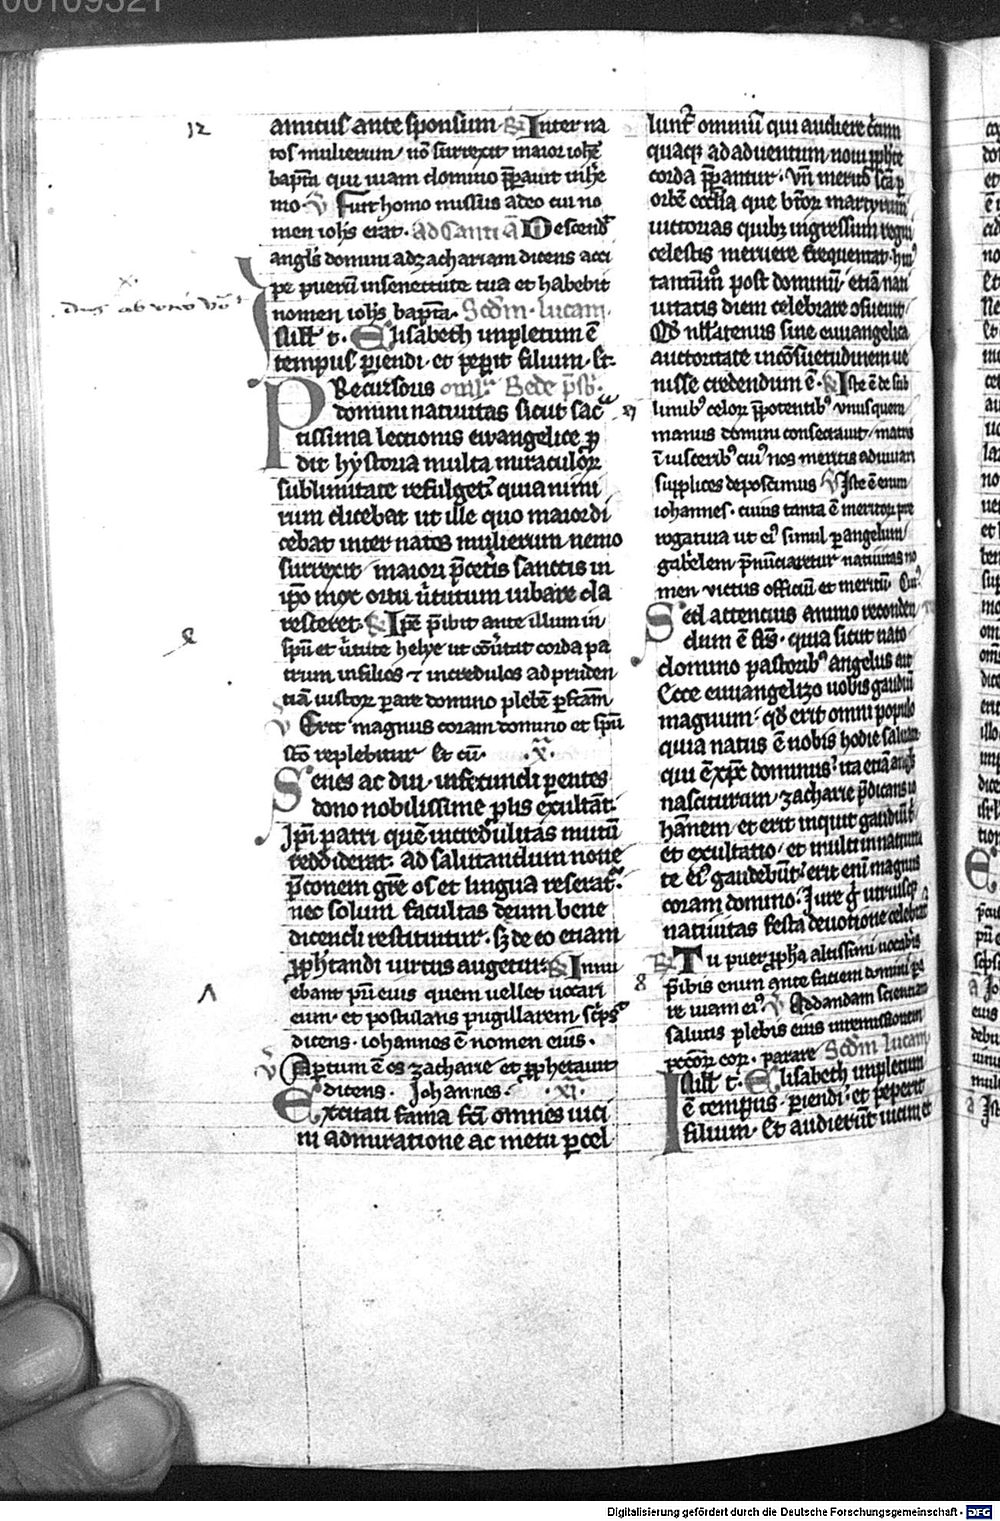 00109321
12
amicus ante sponsum. R Inter na
tos mulierum, nō surrexit maior ioh̄e
bap̄ta qui uiam domino p̄parauit in h̄e
mo. V Fuit homo missus a deo cui no
men ioh̄s erat. ad Cantica A Descend̄
angl̄s domini ad zachariam dicens acci
pe puerū in senectute tua et habebit
nomen ioh̄s bap̄ta. Scd̄m lucam.
Elisabeth impletum ē
tempus pariendi. et peperit filium. et
PRecursoris Bede
domini natiuitas sicut sac̄
tissima lectionis ewangelice p
dit hystoria multa miraculoꝝ
sublimitate refulget. quia nimi
rum dicebat ut ille quo maior di
cebat inter natos mulierum nemo
surrexit, maiori p̄ceteris sanctis in
ip̄o mox ortu uirtutum iubare cla
resceret. R Ip̄e p̄ibit ante illum in
sp̄u et uirtute helye ut cōuertat corda pa
trum in filios et incredulos ad pruden
tiā iustoꝝ parare domino plebē p̄fectam
V Erit magnus coram domino et sp̄u
sc̄o replebitur Et cū. .x.
Senes ac diu infecundi parentes
dono nobilissime prolis exultāt
Ip̄i patri quē incredulitas mutū
reddiderat. ad salutandum noue
p̄conem gr̄e os et lingua reserat̄.
nec solum facultas deum bene
dicendi restituitur. sꝫ de eo etiam
pph̄tandi uirtus augetur. R Innu
ebant p̄ri eius quem uellet uocari
eum. et postulans pugillarem, scripsit
dicens. iohannes ē nomen eius.
V Apertum ē os zacharie et pphetauit
dicens. Johannes. .xi.
Excitati fama fc̄i omnes uici
ni admiratione ac metu p̄cel
lunt̄ omniū qui audiere
quaqꝫ ad aduentum noui pph̄te
corda p̄parantur. Vn̄ merito
orbē ecclia que martyrum
uictorias quibꝫ ingressum regni
celestis meruere frequentat.
tantūmodo post dominū, etiā nati
uitatis diem celebrare
Qd̄ nullatenus sine euuangelica
auctoritate in cōsuetudinem ue
nisse credendum ē. R Iste ē de sub
limibꝰ celoꝝ p̄potentibꝰ unus quem
manus domini consecrauit, matris
ī uisceribꝰ cuiꝰ nos meritis adiuuari
supplices deposcimus V Iste ē enim
iohannes. cuius tanta ē meritoꝝ pre
rogatiua ut eiꝰ simul per angelum
gabrielem p̄nūciaretur natiuitas no
men uictus officiū et meritū
Sed attencius animo reconden
dum ē quia sicut nato
domino pastoribꝰ angelus ait
Ecce euuangelizo uobis gaudiū
magnum. qd̄ erit omni populo
quia natus ē nobis hodie saluator
qui ē xp̄c dominus. ita etiā angl̄s
nasciturum zacharie p̄dicans io
hannem. et erit inquit gaudiū t̄
et exultatio, et multi in natiuita
te eiꝰ gaudebūt. erit eni magnus
coram domino. Jure g̊ utriusqꝫ
natiuitas festa deuotione celebrat̄
R Tu puer pph̄a altissimi uocabis
8 p̄ibis enim ante faciem domini pa
re uiam eiꝰ V Ad dandam scientiam
salutis plebis eius in remissionem
peccatoꝝ eoꝝ. parare Scd̄m lucam
Elisabeth impletum
ē tempus pariendi. et peperit
filium. Et audierūt uicini et
Digitalisierung gefördert durch die Deutsche Forschungsgemeinschaft - DFG